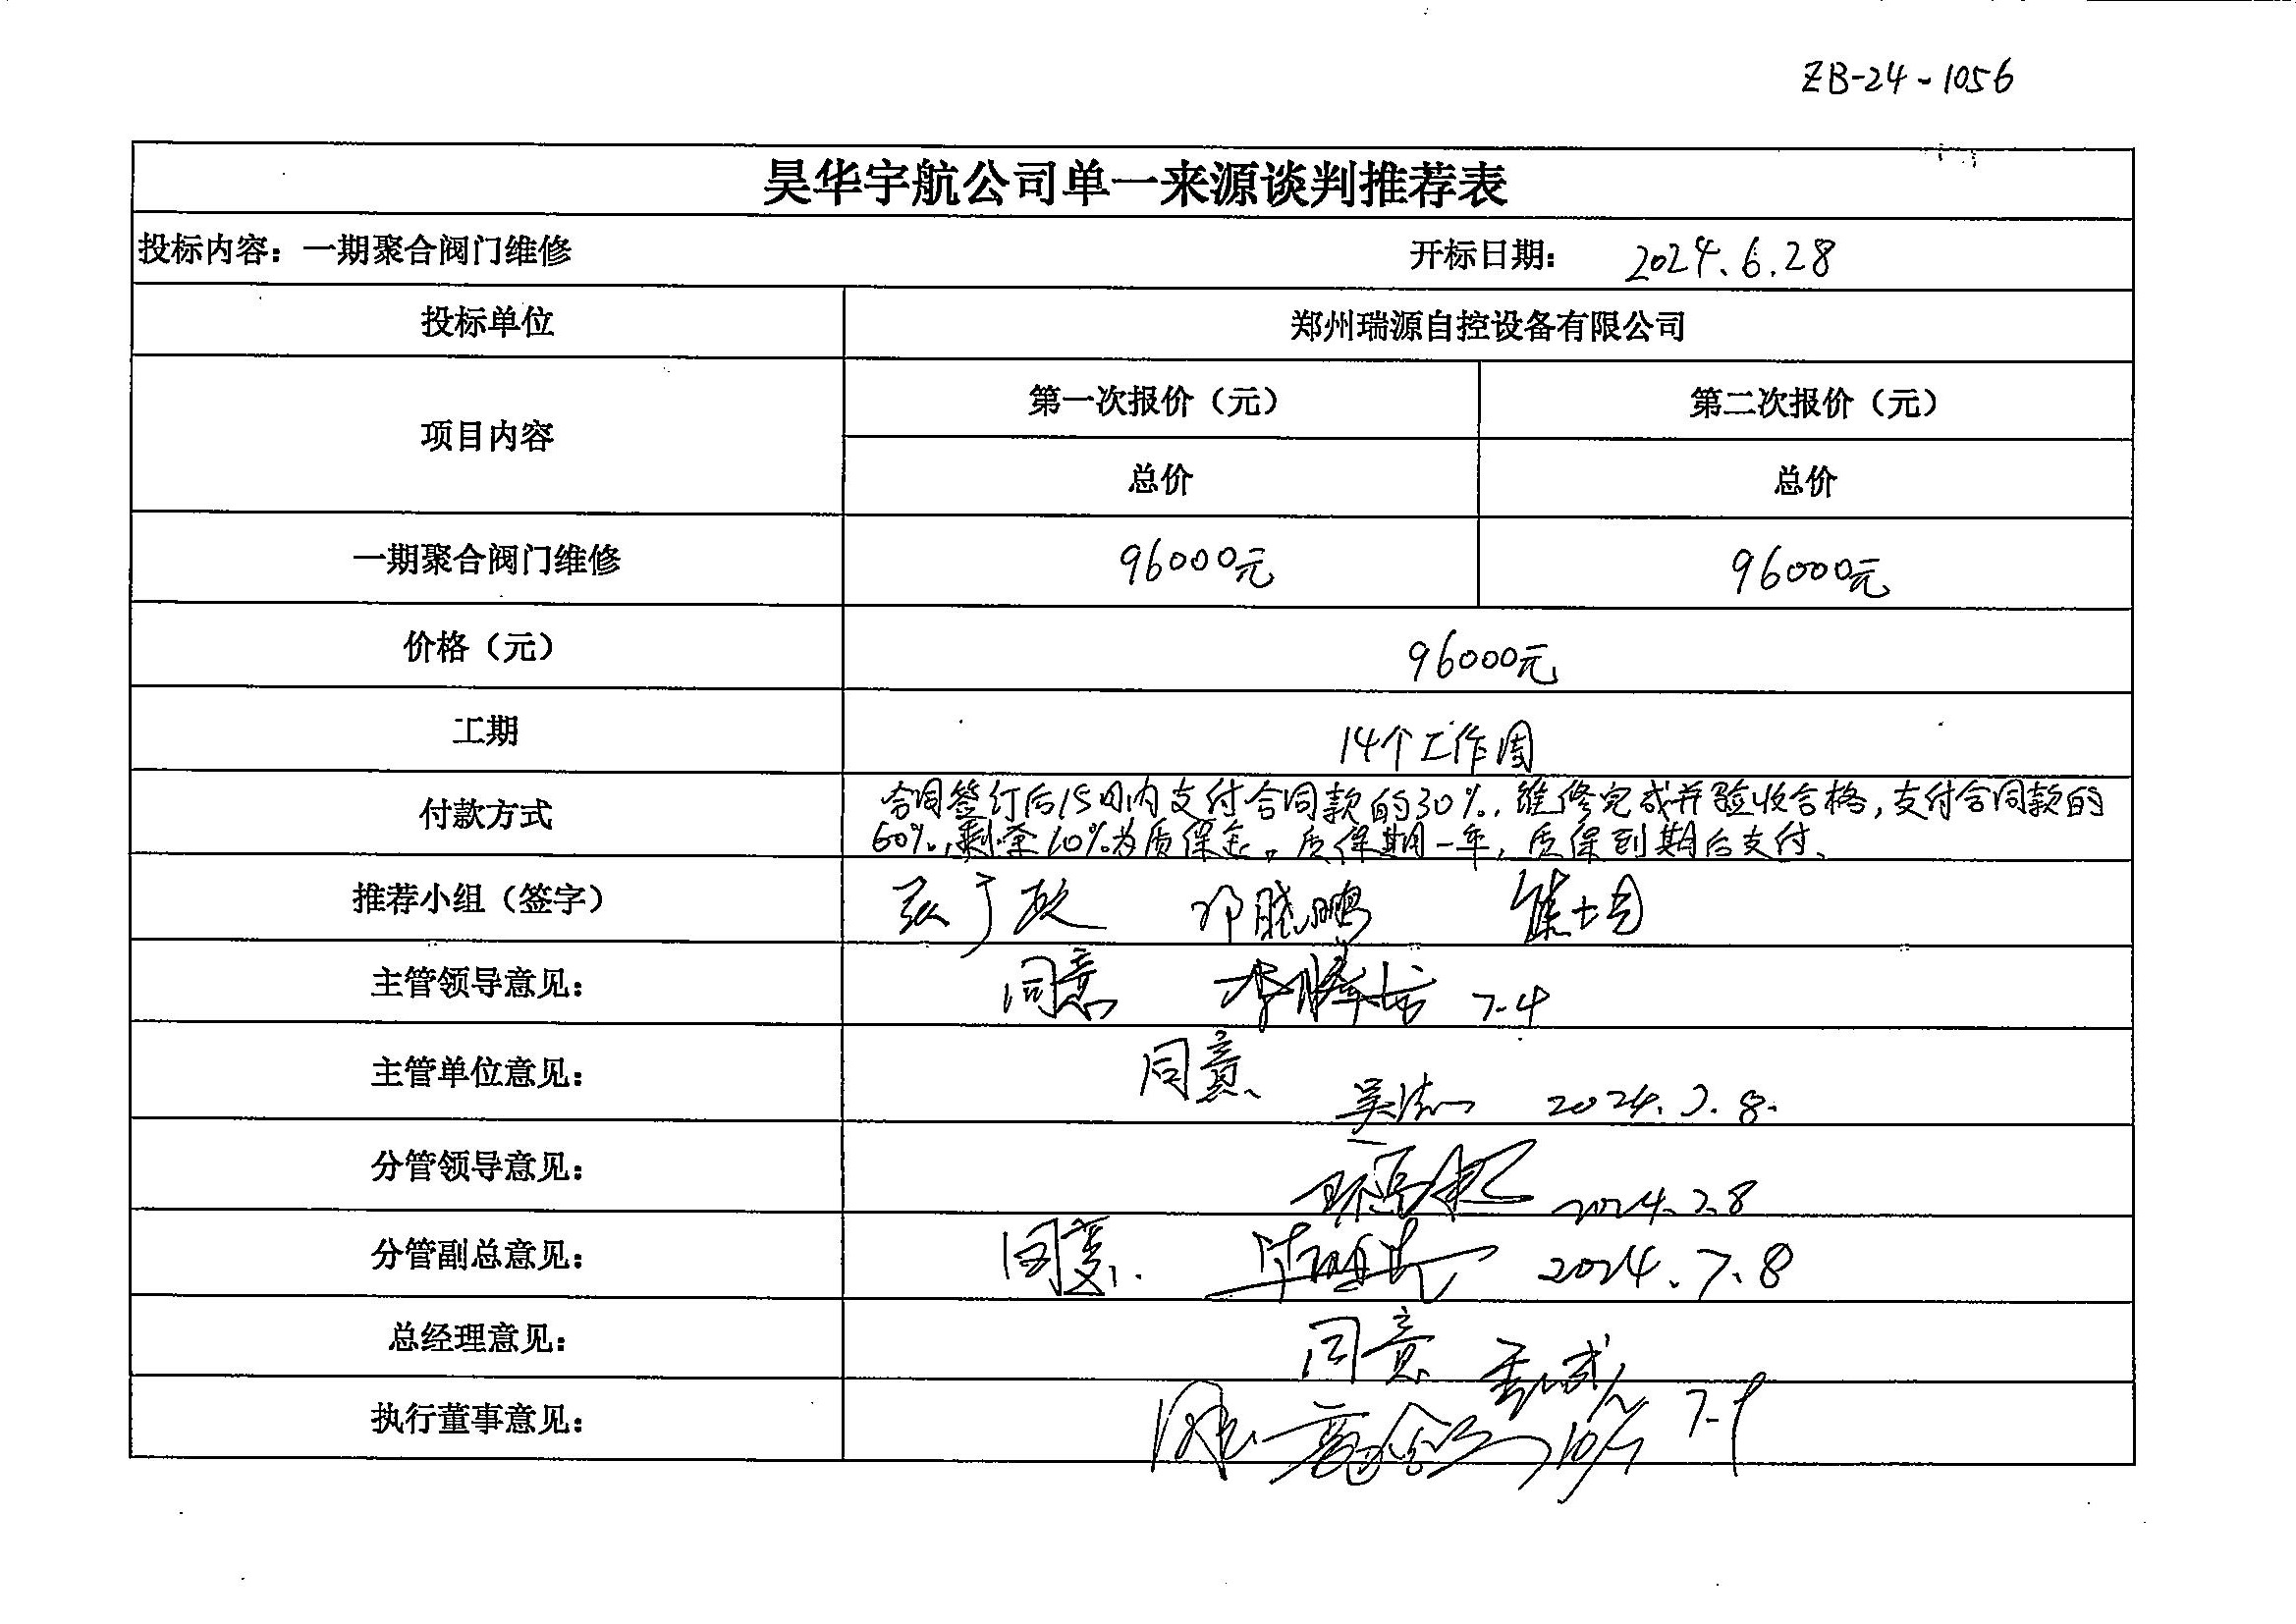 ZB-24-1056
昊华宇航公司单一来源谈判推荐表
投标内容：一期聚合阀门维修 开标日期： 2024.6.28
投标单位 郑州瑞源自控设备有限公司
项目内容 第一次报价（元） 第二次报价（元）
总价 总价
一期聚合阀门维修 96000元 96000元
价格（元） 96000元
工期 14个工作周
付款方式 合同签订后15日内支付合同款的30%，维修完成并验收合格，支付合同款的
60%，剩余10%为质保金。质保期一年，质保到期后支付。
推荐小组（签字） 邓晓鹏
主管领导意见： 同意 7-4
主管单位意见： 同意 2024.7.8.
分管领导意见： 2024.7.8
分管副总意见： 同意. 2024.7.8
总经理意见： 同意 7-9
执行董事意见： 同意 10/7